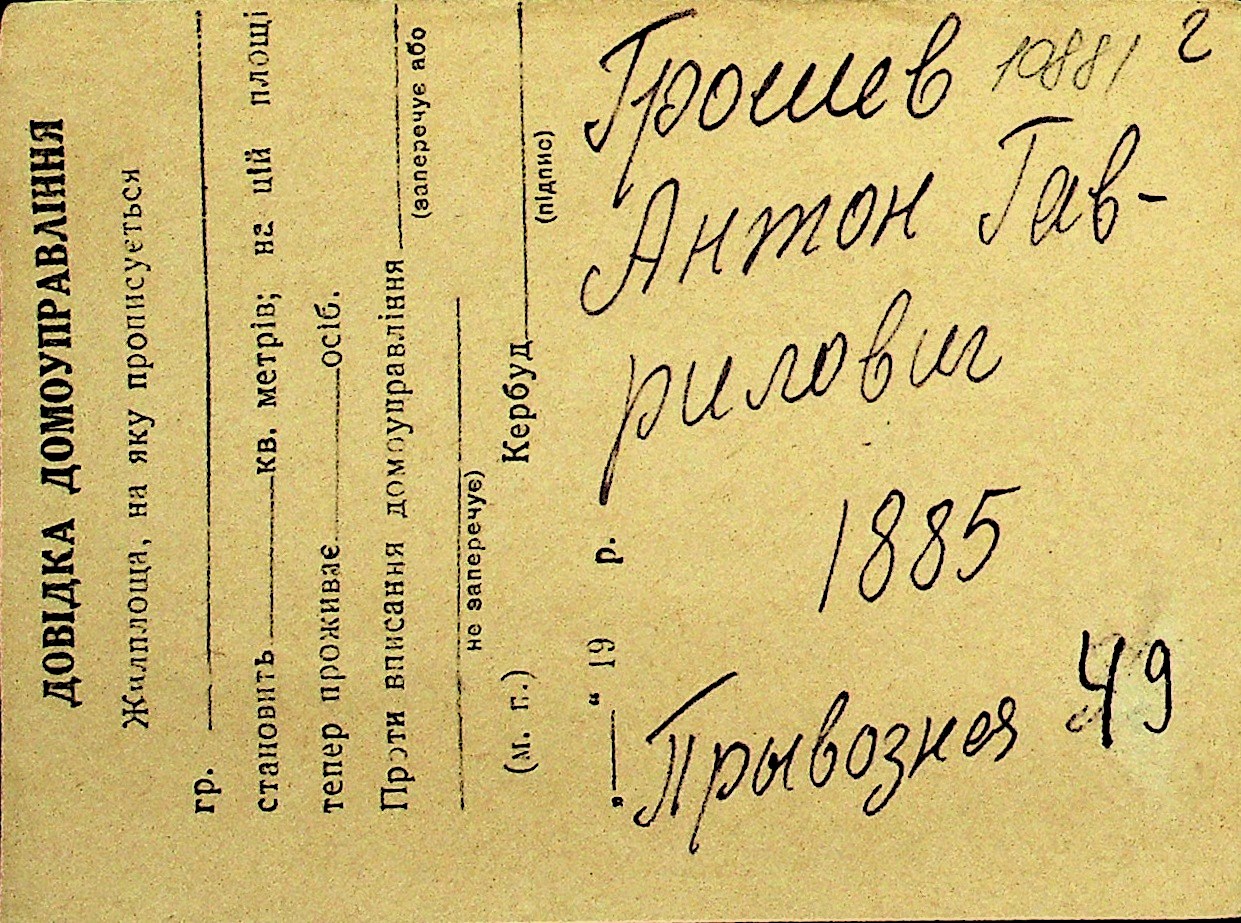 ДОВІДКА ДОМОУПРАВЛІННЯ
Жилплоща, на яку прописується
гр.
становить кв. метрів; на цій площі
тепер проживає осіб.
Проти вписання домоуправління
(заперечує або
не заперечує)
(м. п.) Кербуд
(підпис)
„ “ 19 р.
Грошев 10881 2
Антон Гав-
рилович
1885
Прывозная 49